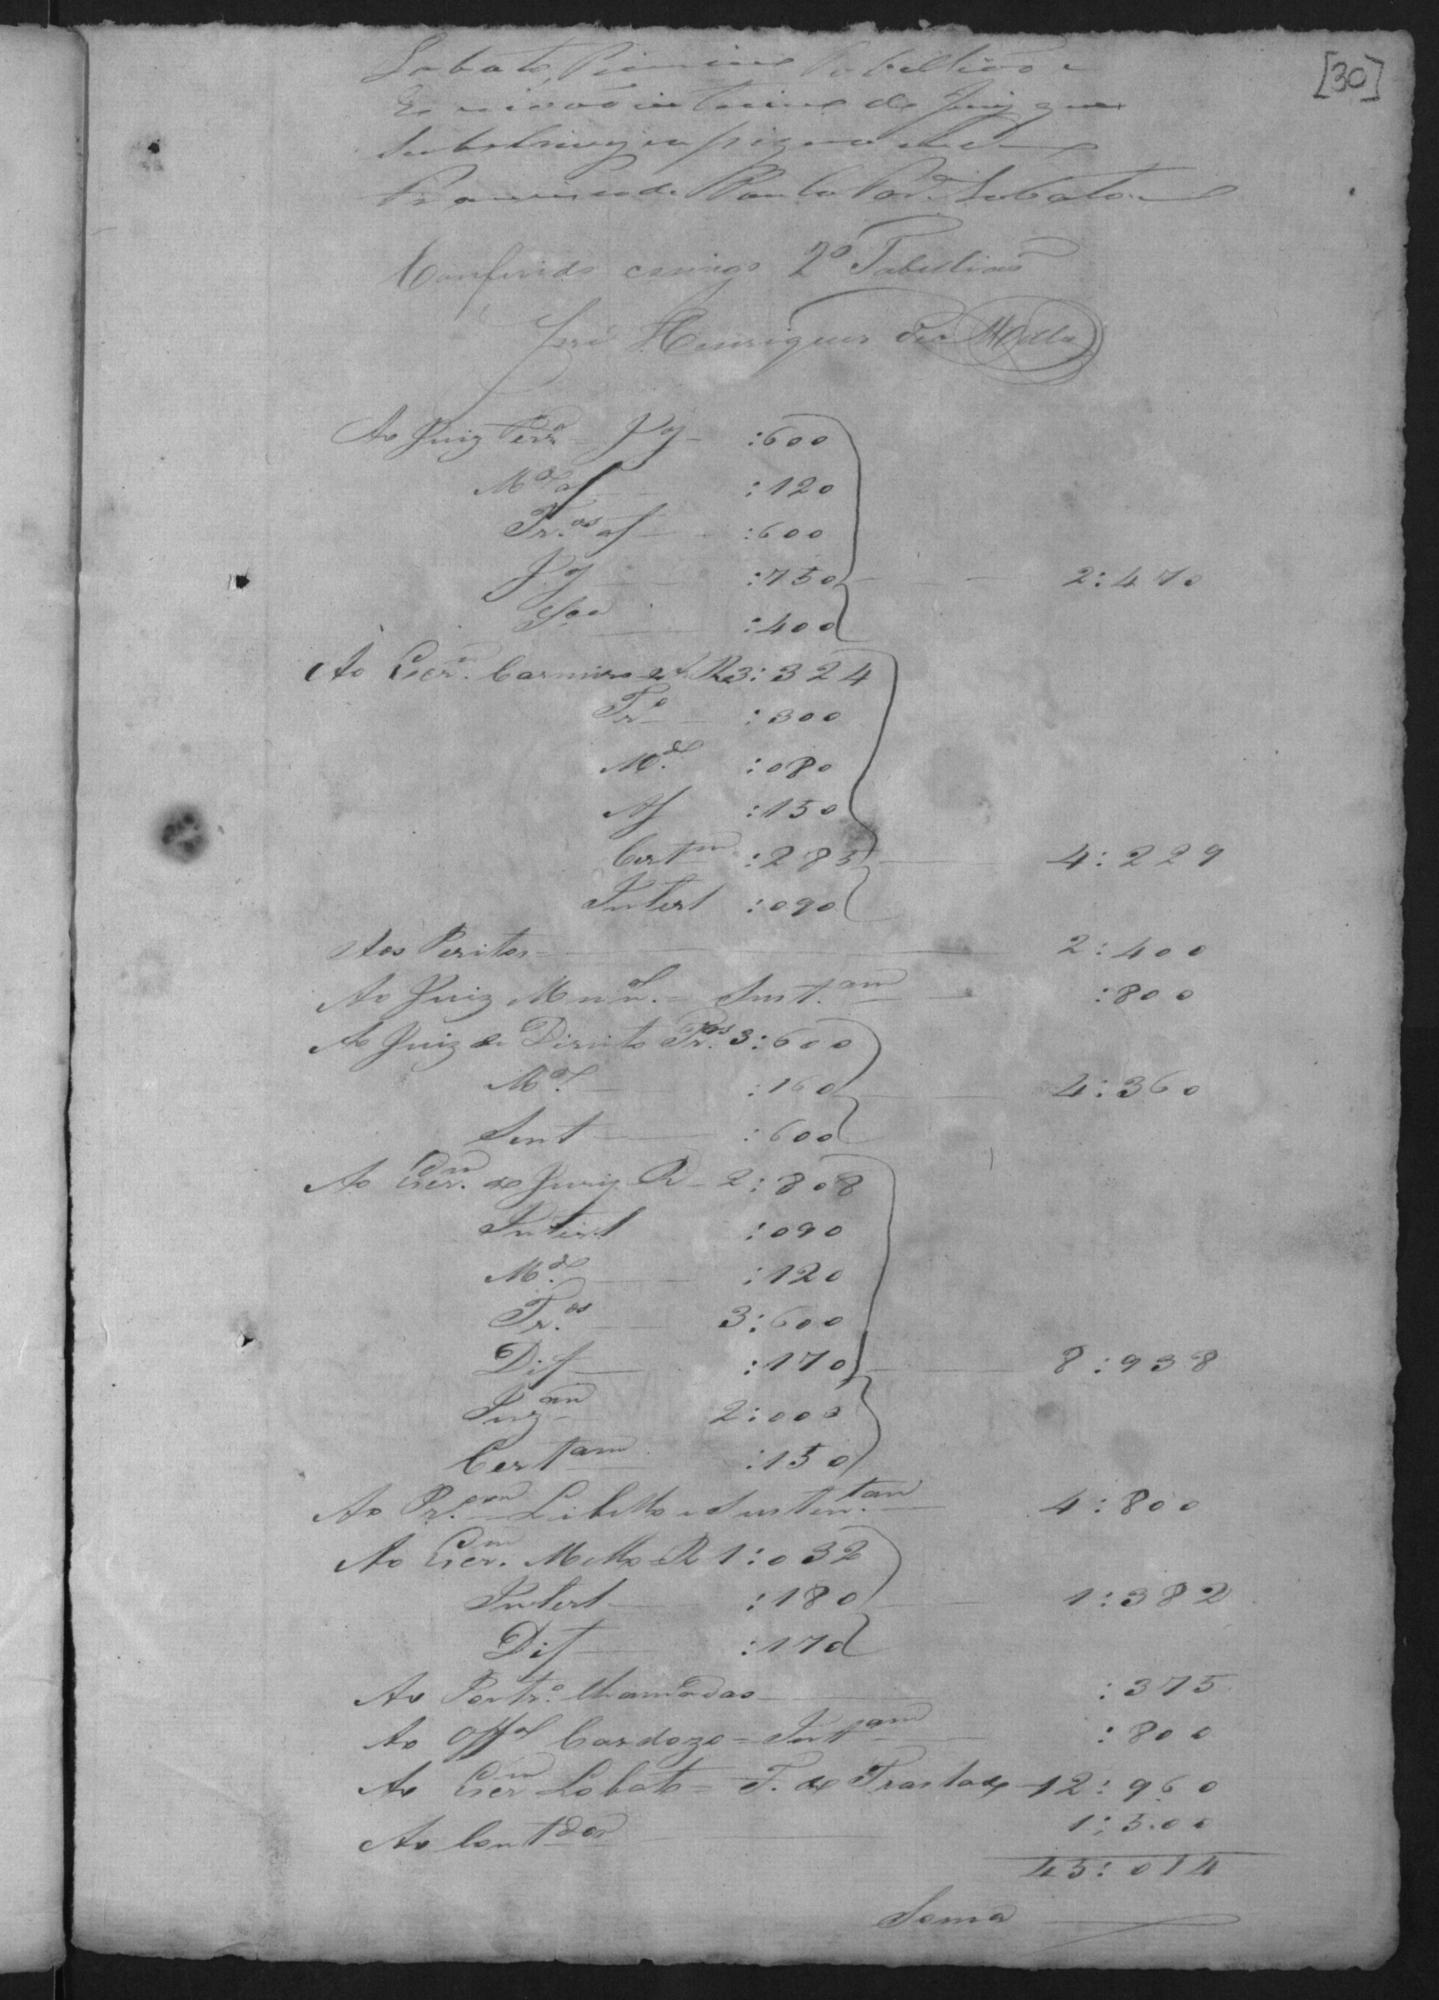 [30]
Lobato, Primeiro Tabellião e
Escrivão interino do Jury que
subscrevy e assigno
Francisco de Paula Per.ª Lobato
Conferido comigo 2º Tabellião
José Henriques de Mello
Ao Juiz :600
M.dof :120
Tr.os af :600
:750 2:470
:400
Ao Escr.m Carneiro R 3:324
Tr.o :300
M.do :080
Af :150
Cert.m :285 4:229
Intert :090
Aos Peritos 2:400
Ao Juiz Mun.al Sust.am :800
Ao Juiz de Direito Tr.os 3:600
M.do :160 4:360
Sent :600
Ao Escr.m do Jury R 2:808
Intert :090
M.do :120
Tr.os 3:600
Dif :170 8:938
2:000
Cert.am :150
Ao Pr.or Libello e Susten.tam 4:800
Ao Escr.m Mello R 1:032
Intert :180 1:382
Dif :170
Ao Portr.o Chamadas :375
Ao Off.al Cardozo = Int.am :800
Ao Escr.m Lobato = T. do Traslado 12:960
Ao Cont.dor 1:500
45:014
Soma